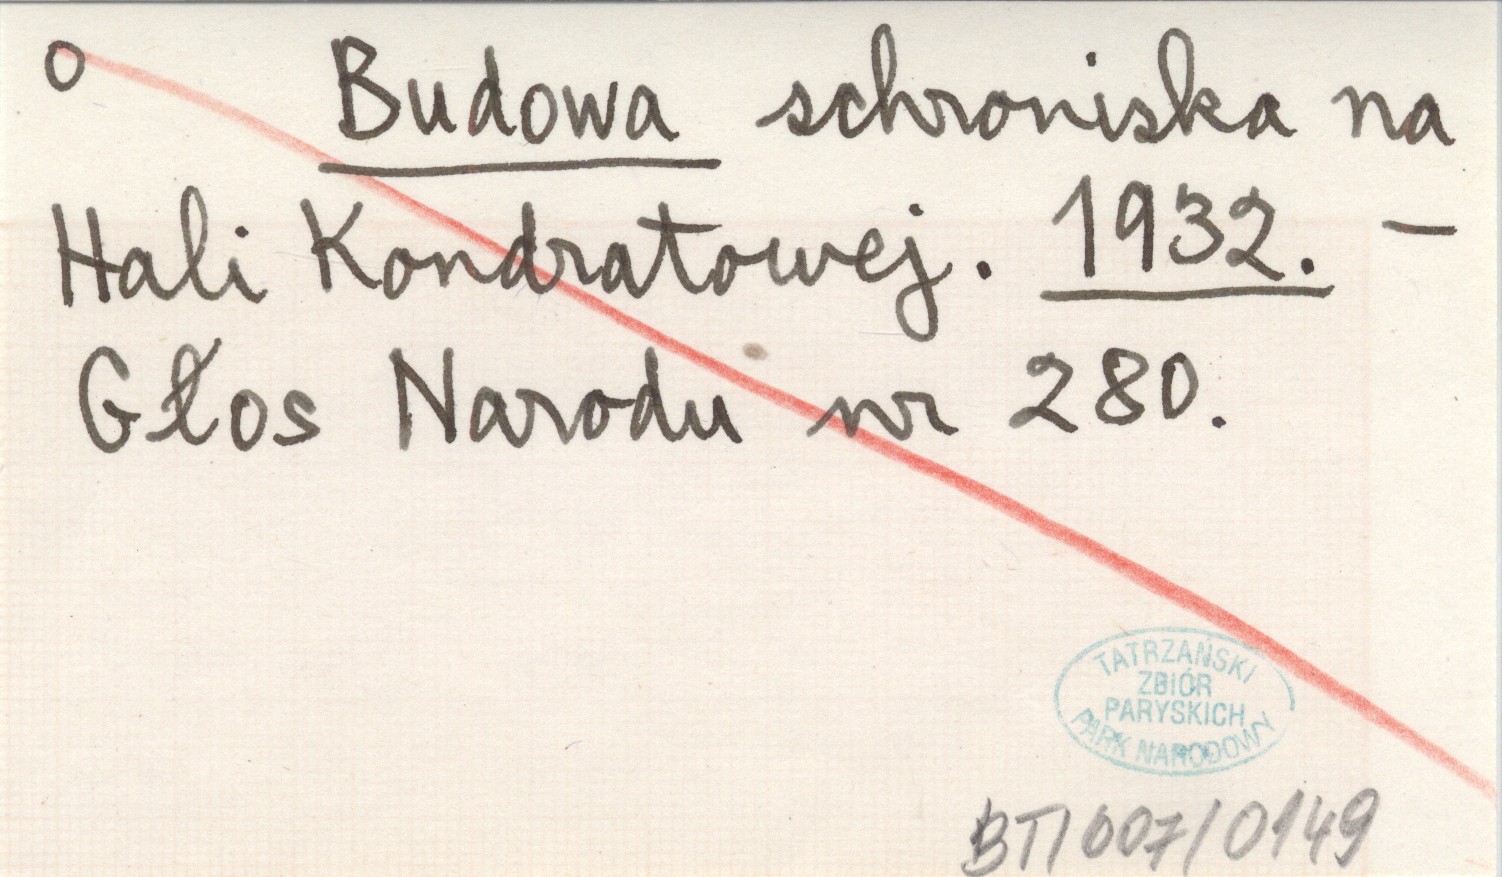 o Budowa schroniska na
Hali Kondratowej. 1932. –
Głos Narodu nr 280.
TATRZAŃSKI
ZBIÓR
PARYSKICH
PARK NARODOWY
BT/007/0149